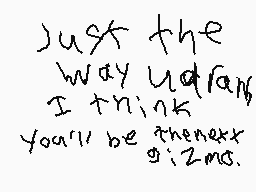 Just the
way udran
I think
you'll be thenext
gizmo.